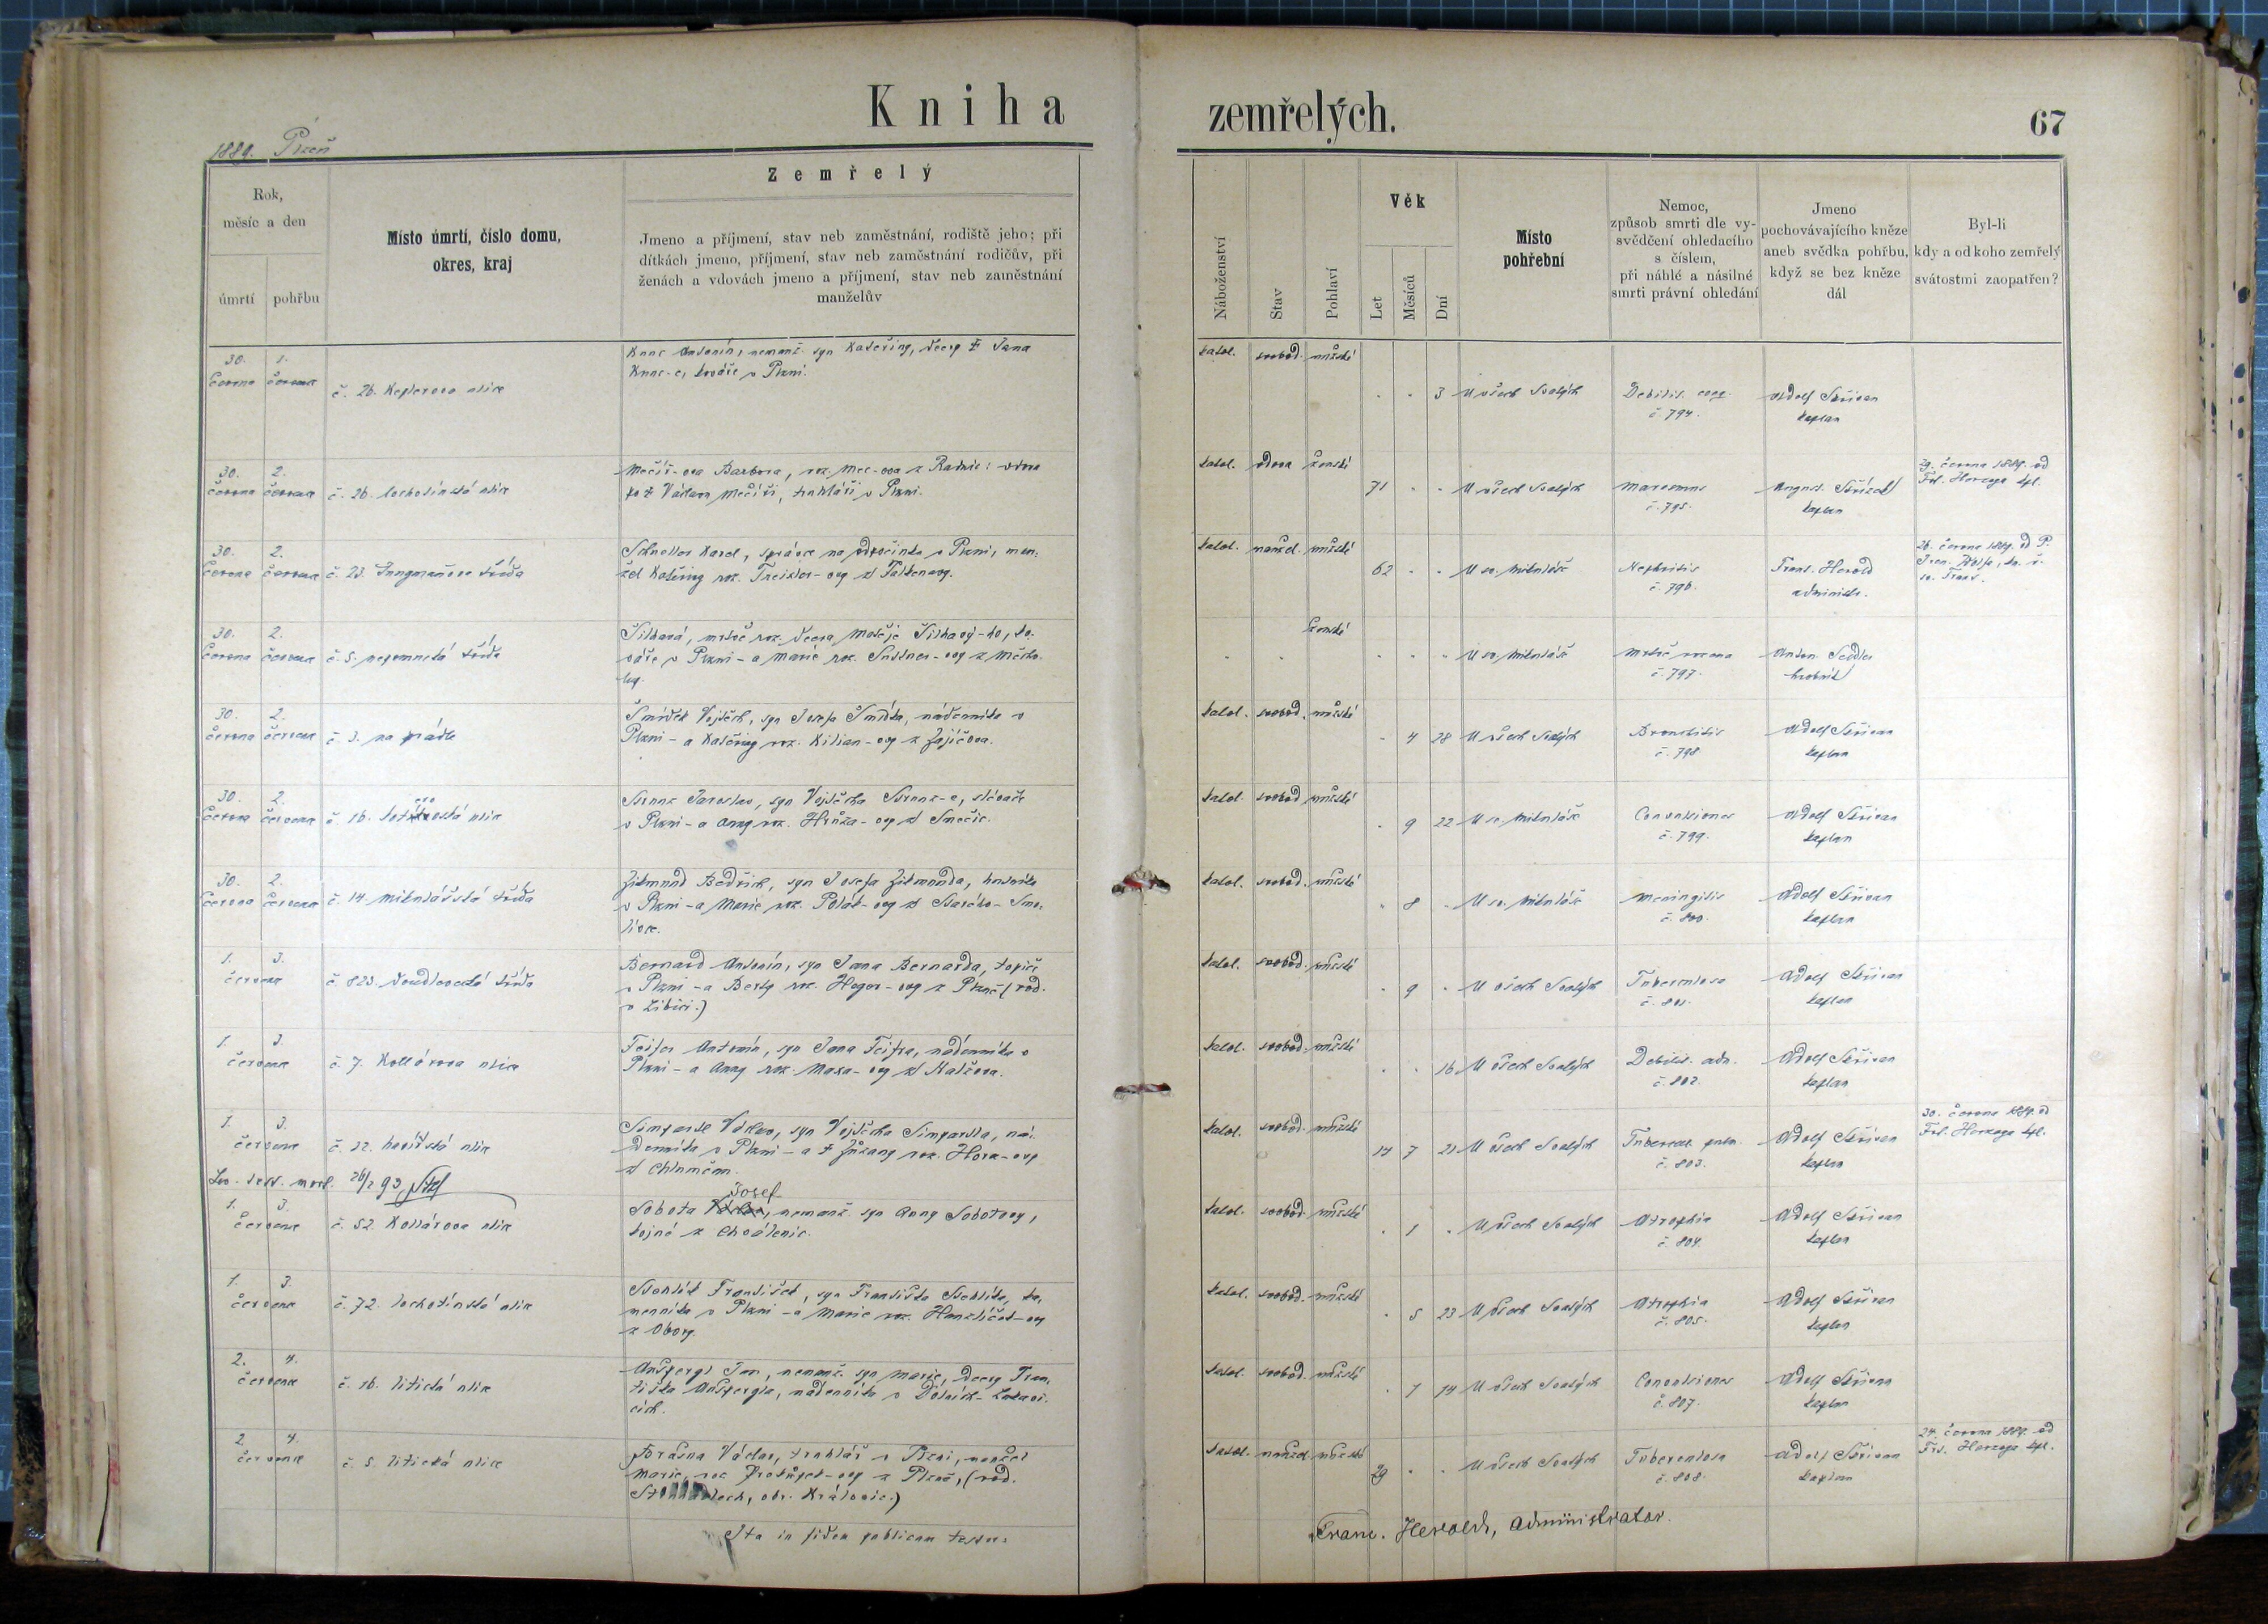 Kniha
zemřelých.
67
1889. Plzeň
Rok,
měsíc a den
úmrtí
pohřbu
Místo úmrtí, číslo domu,
okres, kraj
Zemřelý
Jmeno a příjmení, stav neb zaměstnání, rodiště jeho; při
dítkách jmeno, příjmení, stav neb zaměstnání rodičův, při
ženách a vdovách jmeno a příjmení, stav neb zaměstnání
manželův
Náboženství
Stav
Pohlaví
Věk
Let
Měsíců
Dní
Místo
pohřební
Nemoc,
způsob smrti dle vy-
svědčení ohledacího
s číslem,
při náhlé a násilné
smrti právní ohledání
Jmeno
pochovávajícího kněze
aneb svědka pohřbu,
když se bez kněze
dál
Byl-li
kdy a od koho zemřelý
svátostmi zaopatřen?
30. 1.
června července
č. 26. Keplerova ulice
Antonín, nemanž. syn Kateřiny, dcery † Jana
kováře v Plzni.
katol. svobod. mužské
3 U všech Svatých
Debilit. cong.
č. 794.
Adolf Skřivan
kaplan
30. 2.
června července č. 26. lochotínská ulice
Barbora, roz. z Radnic: vdova
po † Václavu truhláři v Plzni.
katol. vdova ženské
71 U všech Svatých
Marasmus
č. 795.
August.
kaplan
29. června 1889. od
Frt. Herzoga kpl.
30. 2.
června července č. 23. Jungmannova třída
Schneller Karel, správce na odpočinku v Plzni, man-
žel Kateřiny roz. z Falkenavy.
katol. manžel. mužské
62 U sv. Mikuláše
Nephritis
č. 796.
Frant. Herold
administr.
26. června 1889. od P.
sv. Frant.
30. 2.
června července č. 5. nepomucká třída
Šilhavá, mrtvě roz. dcera Matěje Šilhavý-ho, ko-
váře v Plzni - a Marie roz.
ženské
U sv. Mikuláše
mrtvě rozena
č. 797.
Anton. Seidler
hrobník
30. 2.
června července č. 3. na prádle
Šmídek Vojtěch, syn Josefa Šmídka, nádenníka v
Plzni - a Kateřiny roz. Kilian-ovy z Zajíčova.
katol. svobod. mužské
4 28 U všech Svatých
Bronchitis
č. 798
Adolf Skřivan
kaplan
30. 2.
června července č. 16.
Jaroslav, syn Vojtěcha slévače
v Plzni - a Anny roz. Hrůza-ovy z Smečic.
katol. svobod. mužské
9 22 U sv. Mikuláše
Convulsiones
č. 799.
Adolf Skřivan
kaplan
30. 2.
června července č. 14. mikulášská třída
Zikmund Bedřich, syn Josefa Zikmunda,
v Plzni - a Marie roz. Polák-ovy z Starého- Smo-
livce.
katol. svobod. mužské
8 U sv. Mikuláše
Meningitis
č. 800.
Adolf Skřivan
kaplan
1. 3.
července č. 823. doudlevecká třída
Bernard Antonín, syn Jana Bernarda, topiče
v Plzni - a Berty roz. Heger-ovy z Plzně (rod.
v Libici.)
katol. svobod. mužské
9 U všech Svatých
Tuberculosa
č. 801.
Adolf Skřivan
kaplan
1. 3.
července č. 7. Kollárova ulice
Feifer Antonín, syn Jana Feifra, nádenníka v
Plzni - a Anny roz. Maxa-ovy z Kalžova.
katol. svobod. mužské
16 U všech Svatých
Debilit. adn.
č. 802.
Adolf Skřivan
kaplan
1. 3.
července č. 22. havířská ulice
Simpartl Václav, syn Vojtěcha Simpartla, ná-
denníka v Plzni - a † Zuzany roz. Hora-ovy
z Chlumčan.
katol. svobod. mužské
14 7 21 U všech Svatých
Tubercul. pulm.
č. 803.
Adolf Skřivan
kaplan
30. června 1889. od
Frt. Herzoga kpl.
26/2 93
1. 3.
července č. 52. Kollárova ulice
Josef
Sobota nemanž. syn Anny Sobotovy,
kojné z Chválenic.
katol. svobod. mužské
1 U všech Svatých
Atrophia
č. 804.
Adolf Skřivan
kaplan
1. 3.
července č. 72. lochotínská ulice
František, syn Františka ka-
menníka v Plzni - a Marie roz. Hanzlíček-ovy
z Obory.
katol. svobod. mužské
5 23 U všech Svatých
Atrophia
č. 805.
Adolf Skřivan
kaplan
2. 4.
července č. 16. litická ulice
Aušpergl Jan, nemanž. syn Marie, dcery Fran-
tiška Aušpergla, nádenníka v Dolních- Lukavi-
cích.
katol. svobod. mužské
1 14 U všech Svatých
Convulsiones
č. 807.
Adolf Skřivan
kaplan
2. 4.
července č. 5. litická ulice
Brašna Václav, truhlář v Plzni, manžel
Marie, roz. Prokůpek-ovy z Plzně, (rod.
okr. Kralovic.)
katol. manžel. mužské
29 U všech Svatých
Tuberculosa
č. 808.
Adolf Skřivan
kaplan
24. června 1889. od
Frt. Herzoga kpl.
Ita in fidem publicam testor:
Franc. Herold, administrator.